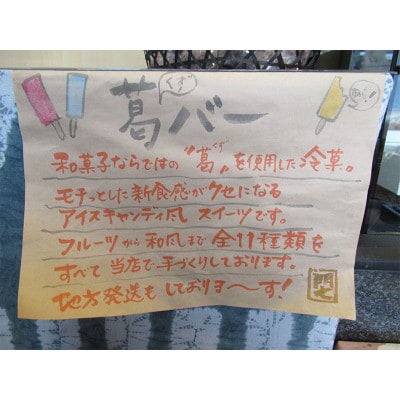 葛バー
くず
和菓子ならではの"葛"を使用した冷菓。
くず
モチっとした新食感がクセになる
アイスキャンディ風スイーツです。
フルーツから和風まで全11種類を
すべて当店で手づくりしております。
地方発送もしておりま〜す!